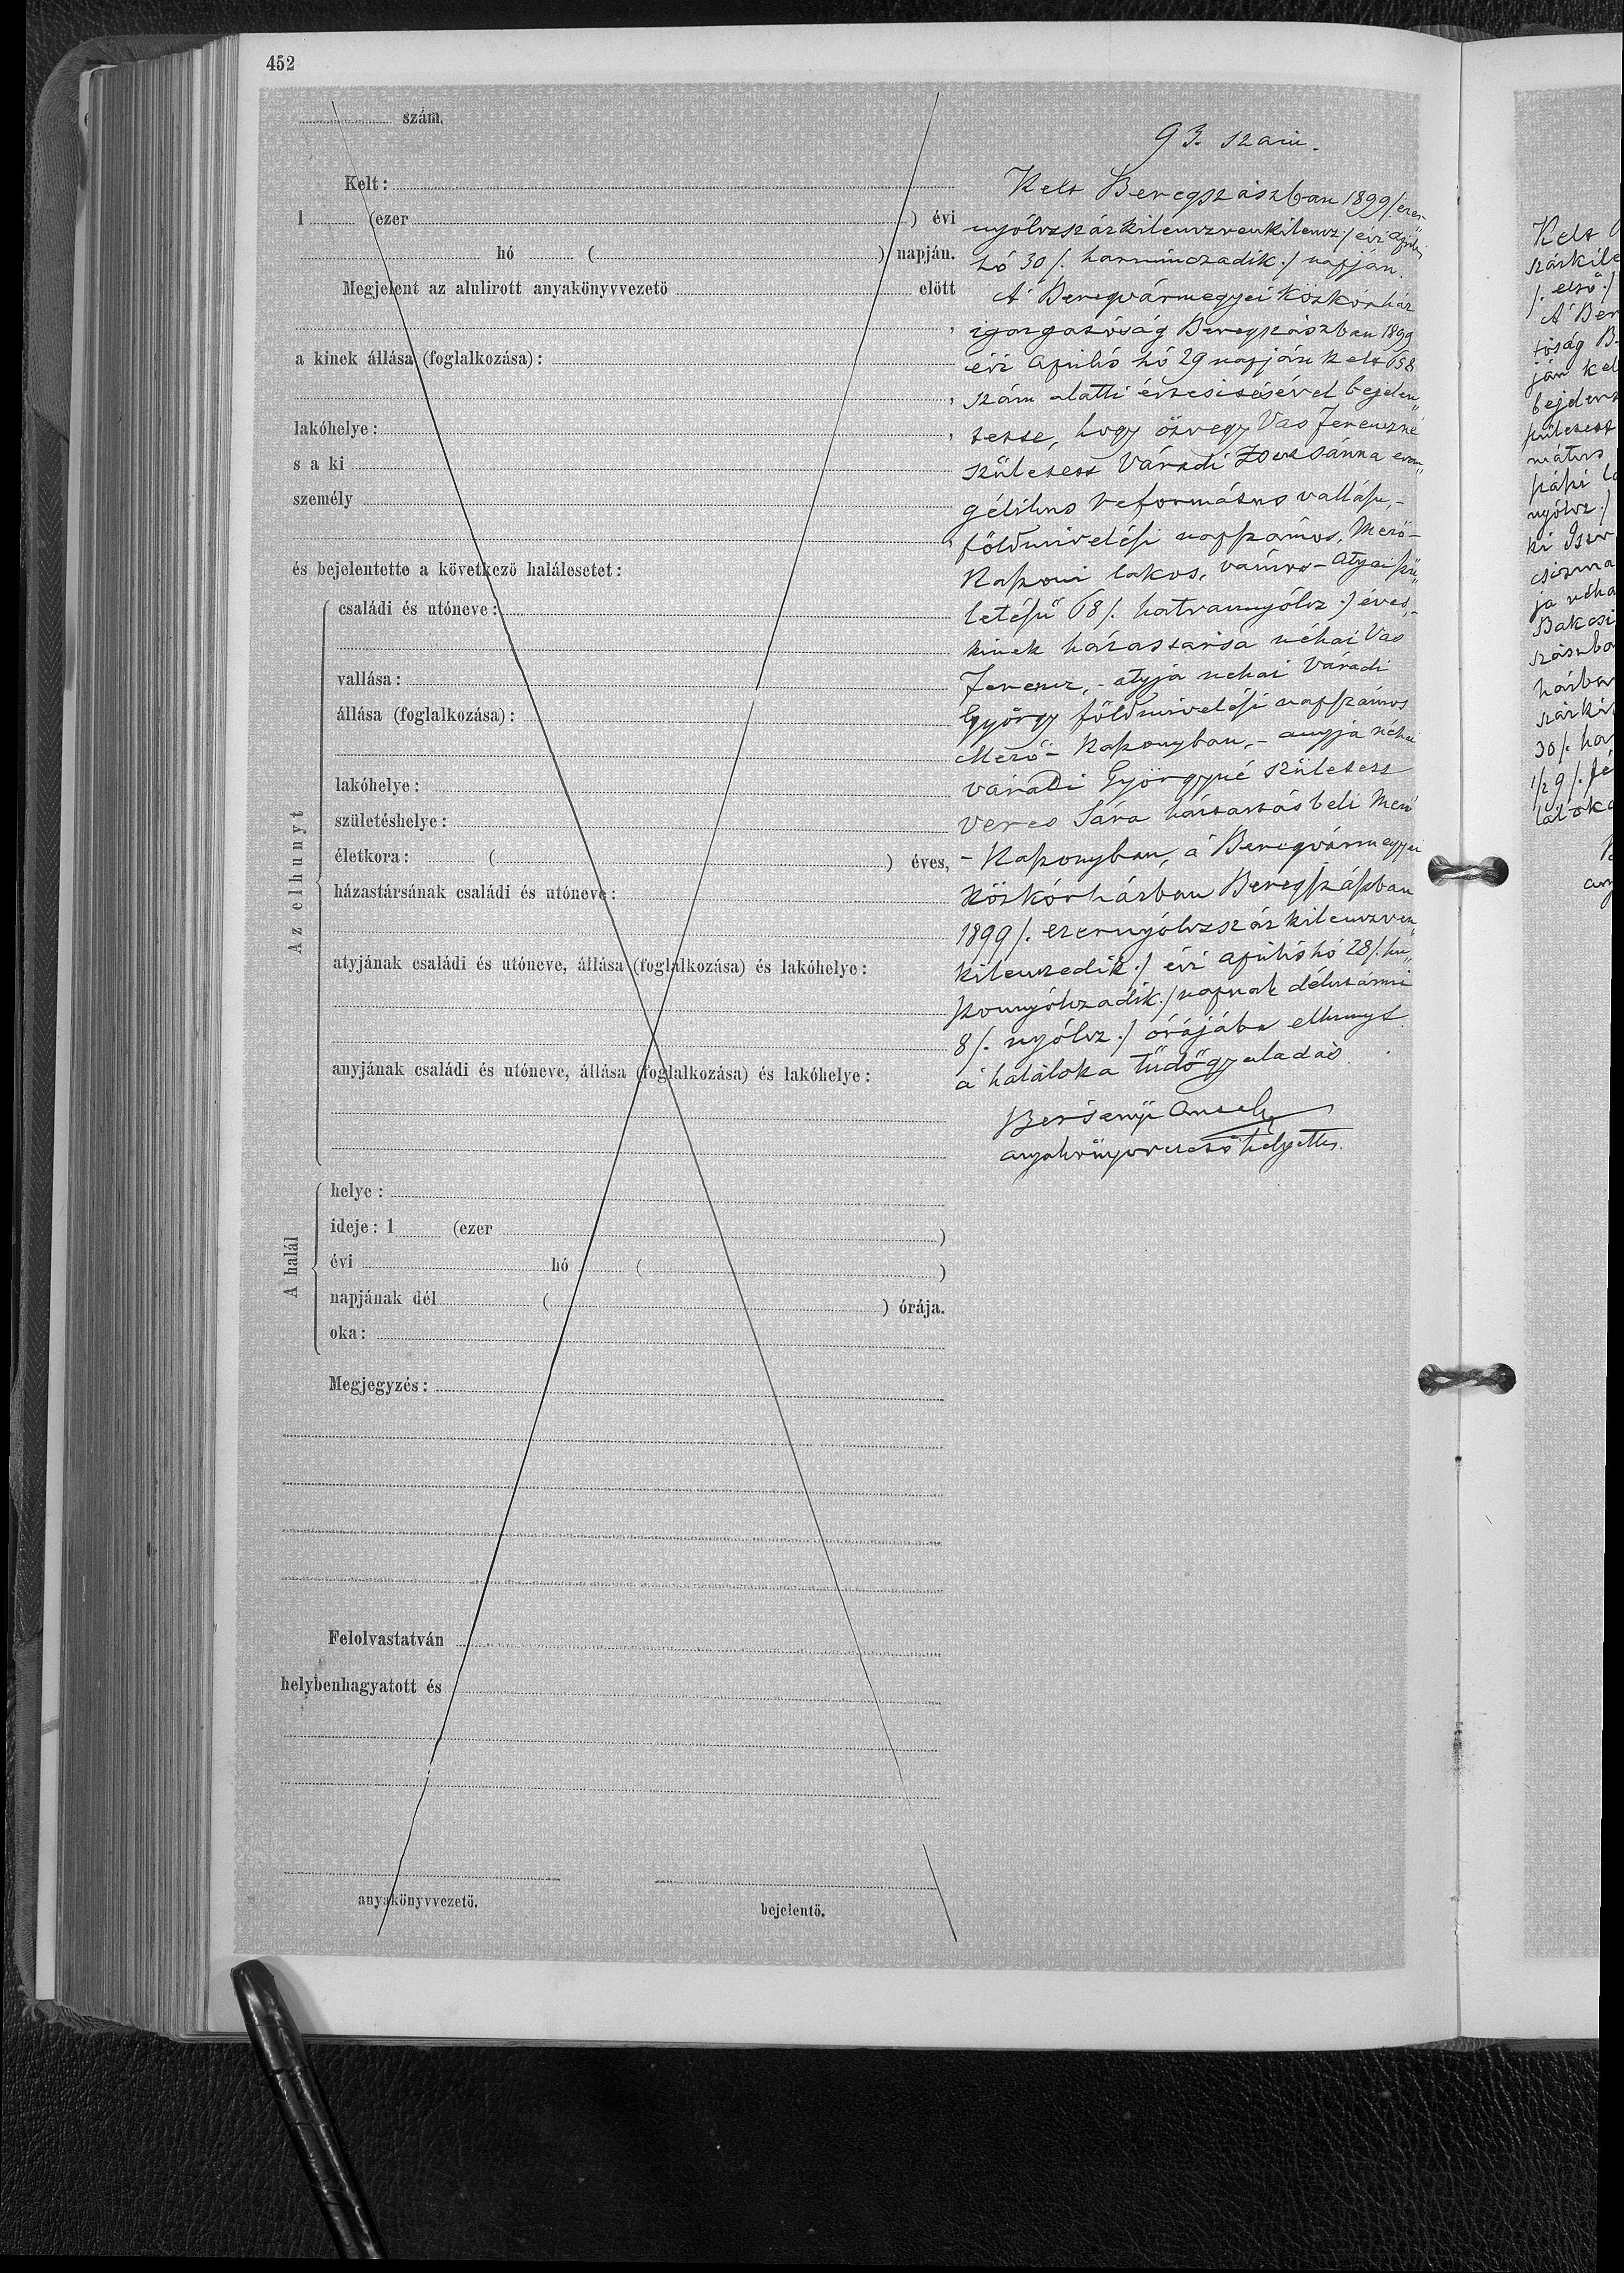 452
szám.
Kelt:
1 (ezer ) évi
hó ( ) napján.
Megjelent az alulirott anyakönyvvezető előtt
,
a kinek állása (foglalkozása):
,
lakóhelye: ,
s a ki
személy
,
és bejelentette a következő halálesetet:
Az elhunyt
családi és utóneve:
vallása:
állása (foglalkozása):
lakóhelye:
születéshelye:
életkora: ( ) éves,
házastársának családi és utóneve:
atyjának családi és utóneve, állása (foglalkozása) és lakóhelye:
anyjának családi és utóneve, állása (foglalkozása) és lakóhelye:
A halál
helye:
ideje: 1 (ezer )
évi hó ( )
napjának dél ( ) órája.
oka:
Megjegyzés:
Felolvastatván
helybenhagyatott és
anyakönyvvezető.
bejelentő.
93. szám.
Kelt Beregszászban 1899 /. ezer„
nyólczszázkilenczvenkilencz ./ évi április
hó 30 /. harminczadik ./ napján.
A Beregvármegyei Közkórház
igazgatóság Beregszászban 1899
évi április hó 29 napján kelt 658
szám alatti értesitésével bejelen„
tette, hogy özvegy Vas Ferenczné
született Váradi Zsuzsánna evan„
gélikus református vallásu,-
földmivelési napszámos, Mező-
Kaszoni lakos, vámos-Atyai szü„
letésü 68 /. hatvannyólcz ./ éves,-
kinek házastársa néhai Vas
Ferencz,- atyja néhai Váradi
György földmivelési napszámos
Mező- Kaszonyban,- anyja néhai
váradi Györgyné született
Veres Sára háztartásbeli Mező
- Kaszonyban, a Beregvármegyei
Közkórházban Beregszászban
1899 /. ezernyólczszázkilenczven„
kilenczedik ./ évi április hó 28 /. hu„
szonnyólczadik ./ napnak délutánni
8 /. nyólcz ./ órájába elhunyt.
a haláloka tüdőgyuladás.
anyakönyvvezető helyettes.
Kelt
szászkile
/. első ./
A Ber
ján kel
nyólcz ./
csizma
ja néha
Bakcsi
30 /. har